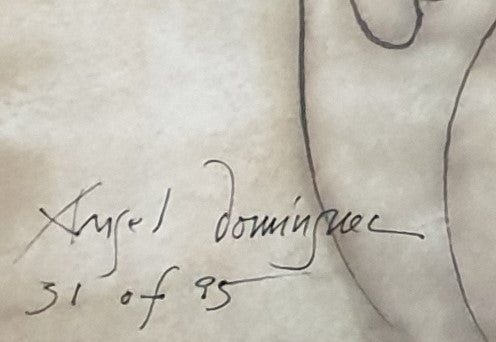 Angel Dominguez
31 of 95